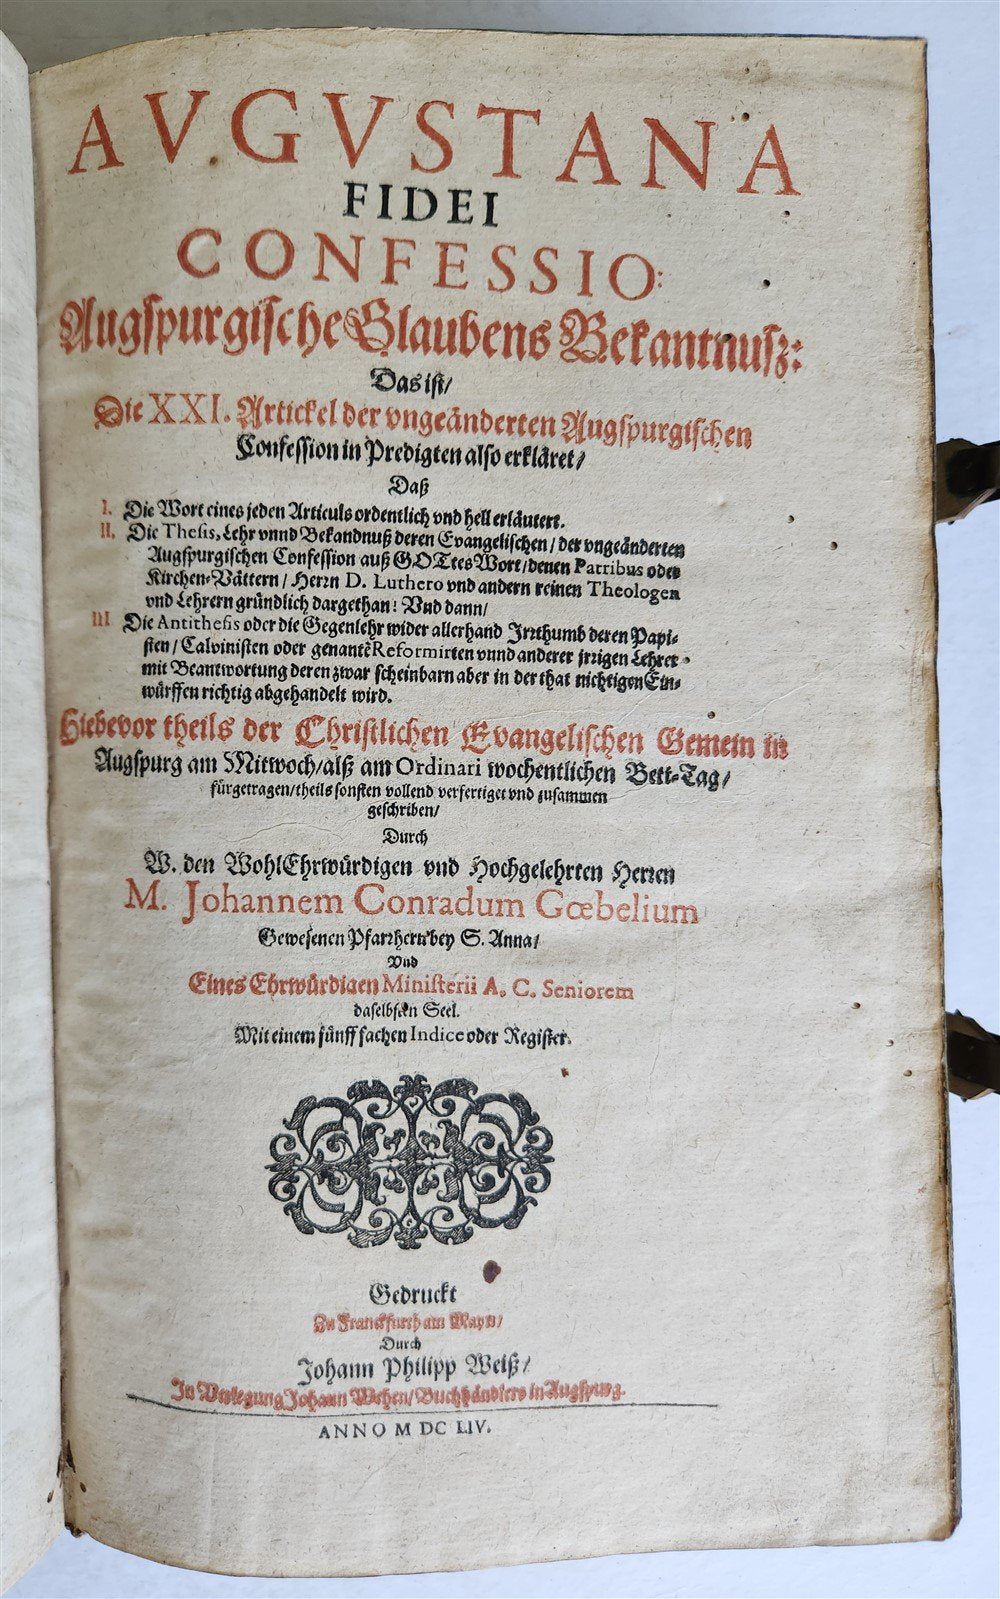 AVGVSTANA
FIDEI
CONFESSIO:
Augſpurgiſche Glaubens Bekantnuſz:
Das iſt/
Die XXI. Artickel der vngeänderten Augſpurgiſchen
Confeſſion in Predigten alſo erkläret/
Daß
I. Die Wort eines jeden Articuls ordentlich vnd hell erläutert.
II. Die Theſis, Lehr vnnd Bekandnuß deren Evangeliſchen/ der vngeänderten
Augſpurgiſchen Confeſſion auß GOTtes Wort/ denen Patribus oder
Kirchen-Vättern/ Herrn D. Luthero vnd andern reinen Theologen
vnd Lehrern gründlich dargethan: Vnd dann/
III Die Antitheſis oder die Gegenlehr wider allerhand Irrthumb deren Papi-
ſten/ Calviniſten oder genantē Reformirten vnnd anderer jrrigen Lehrer
mit Beantwortung deren zwar ſcheinbarn aber in der that nichtigen Ein-
würffen richtig abgehandelt wird.
Hiebevor theils der Chriſtlichen Evangeliſchen Gemein in
Augſpurg am Mittwoch/ alß am Ordinari wochentlichen Bett-Tag/
fürgetragen/ theils ſonſten vollend verfertiget vnd zuſammen
geſchriben/
Durch
W. den WohlEhrwürdigen vnd Hochgelehrten Herren
M. Johannem Conradum Gœbelium
Geweſenen Pfarrhern bey S. Anna/
Vnd
Eines Ehrwürdigen Miniſterii A. C. Seniorem
daſelbſten Seel.
Mit einem fünff fachen Indice oder Regiſter.
Gedruckt
Zu Franckfurth am Mayn/
Durch
Johann Philipp Weiß/
In Verlegung Johann Wehen/ Buchhändlers in Augſpurg.
ANNO M DC LIV.